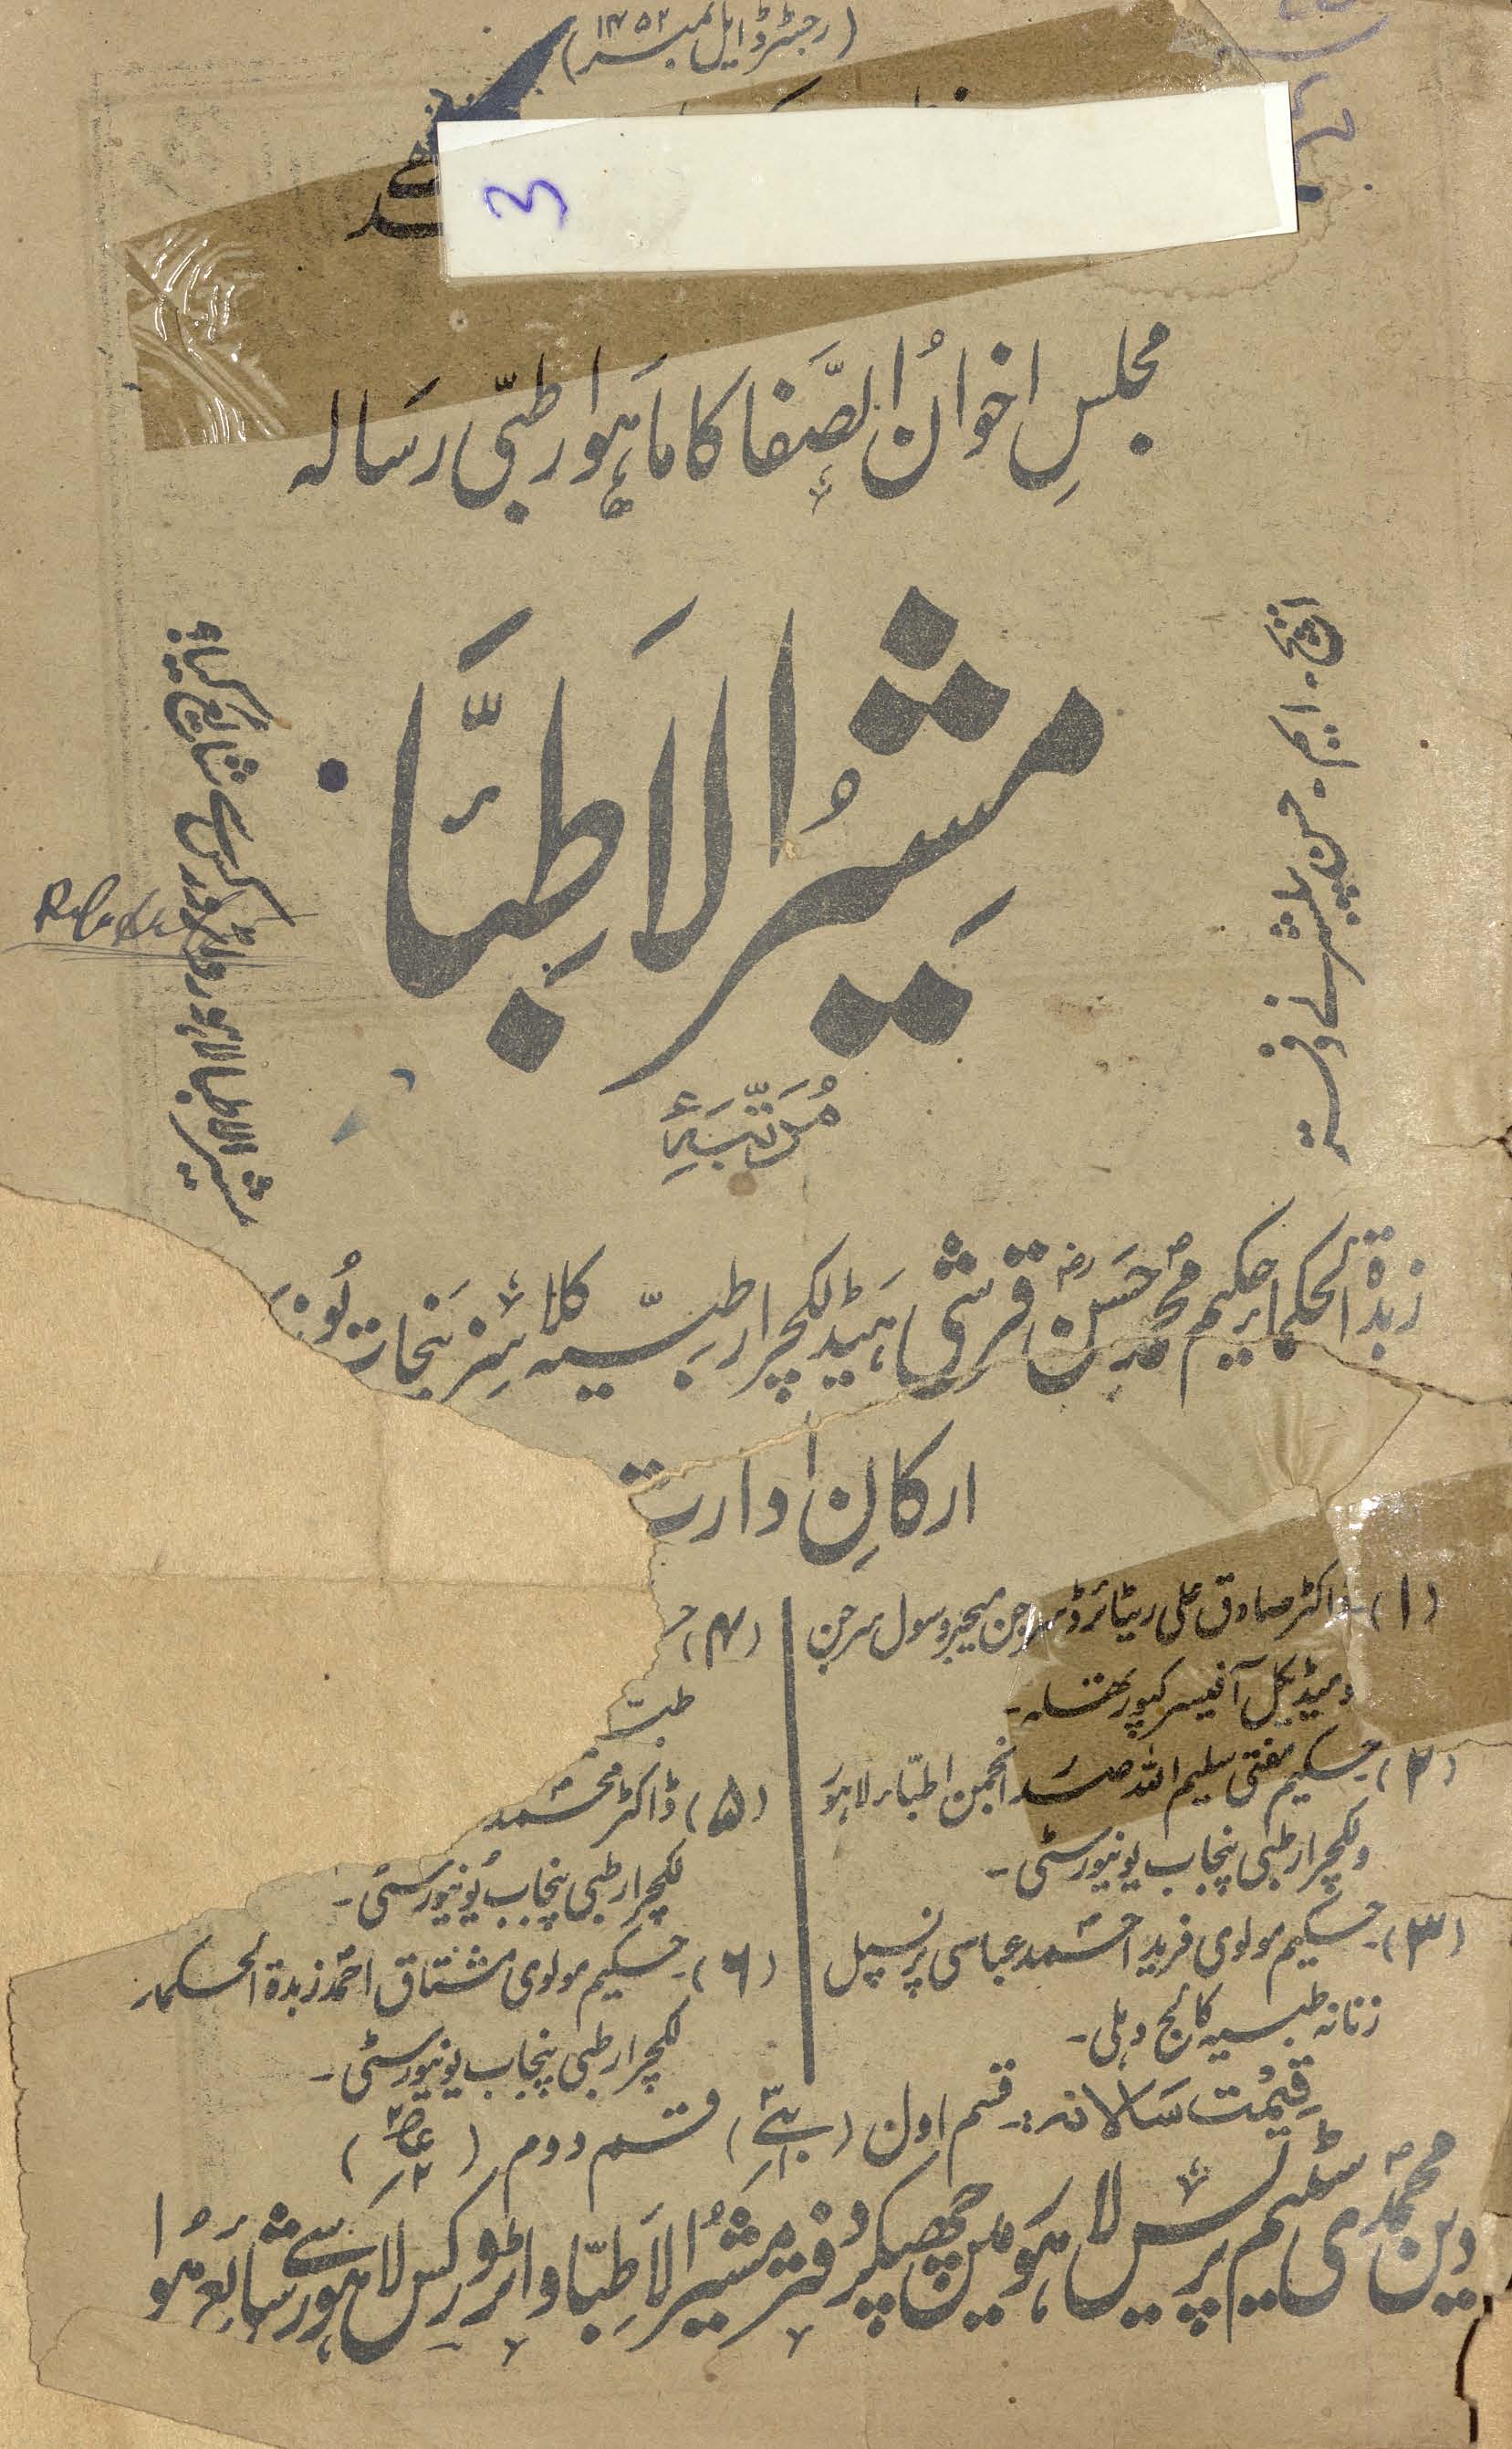 (رجسٹرڈ ایل نمبر ۱۴۵۲)
مجلسِ اخوانُ الصَّفا کا ماہوار طبّی رسالہ
مشیرُ الاَطِبَّاء
مُرتّبَہٴ
زبدۃ الحکماء حکیم محمد حسن قرشی ہیڈ لکچرار طبّیہ کلاسز پنجاب یُونیو
ارکانِ ادارت
(۱) ڈاکٹر صادق علی ریٹائرڈ سرجن میجر و سول سرجن
و میڈیکل آفیسر کپورتھلہ۔
(۲) حکیم مفتی سلیم اللہ صدر انجمن اطبّاء لاہور
و لکچرار طبی پنجاب یونیورسٹی۔
(۳) حکیم مولوی فرید احمد عباسی پرنسپل
زنانہ طبیہ کالج دہلی۔
(۴)
طبیہ
(۵) ڈاکٹر محمد
لکچرار طبی پنجاب یُونیورسٹی۔
(۶) حکیم مولوی مشتاق احمد زبدۃ الحکماء
لکچرار طبی پنجاب یونیورسٹی۔
قیمت سالانہ:۔ قسم اول ( ) قسم دوم ( )
دین محمدی سٹیم پریس لاہور میں چھپکر دفتر مشیرُ الاَطِبّاء واٹر ورکس لاہور سے شائع ہُوا
ایچ۔ ایم۔ حسن پبلشر نے دفتر
مشیر الاطبا لاہور واٹر ورکس سے شائع کیا۔
3